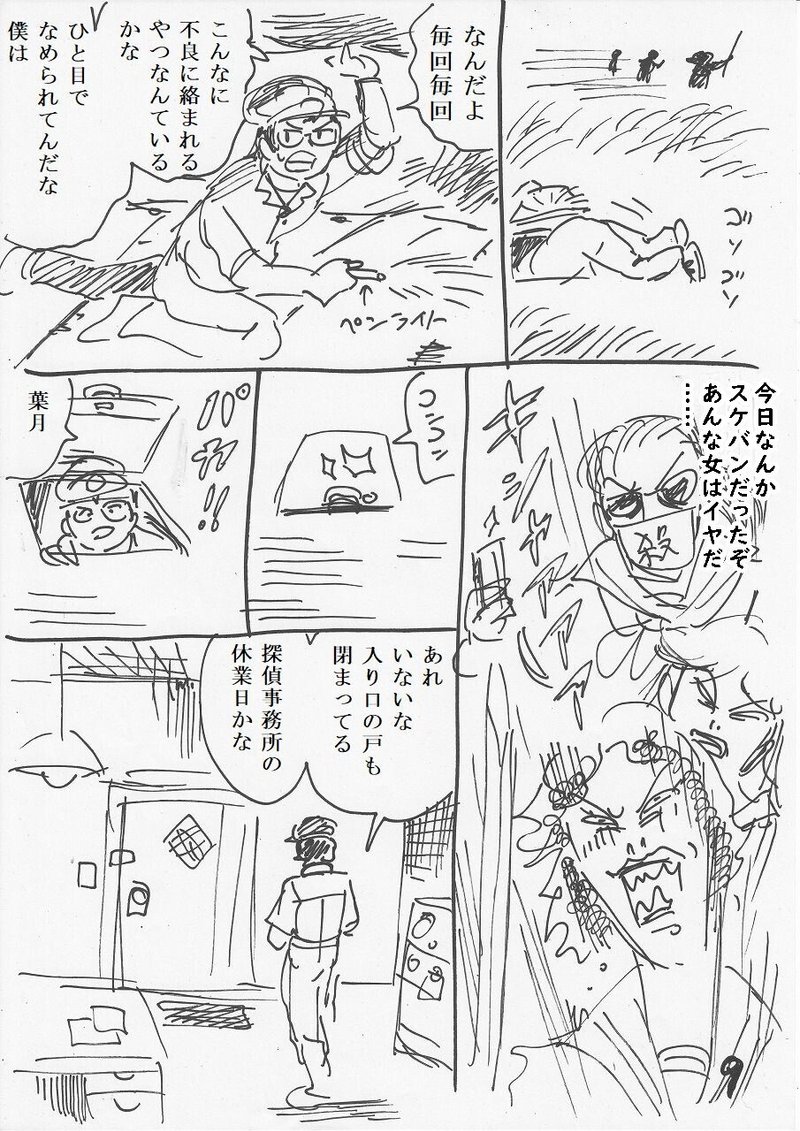 ゴソゴソ
なんだよ
毎回毎回
こんなに
不良に絡まれる
やつなんている
かな
ひと目で
なめられてんだな
僕は
ペンライト
今日なんか
スケバンだったぞ
あんな女はイヤだ
……
殺
コンコン
パカッ!!
葉月
あれ
いないな
入り口の戸も
閉まってる
探偵事務所の
休業日かな
9